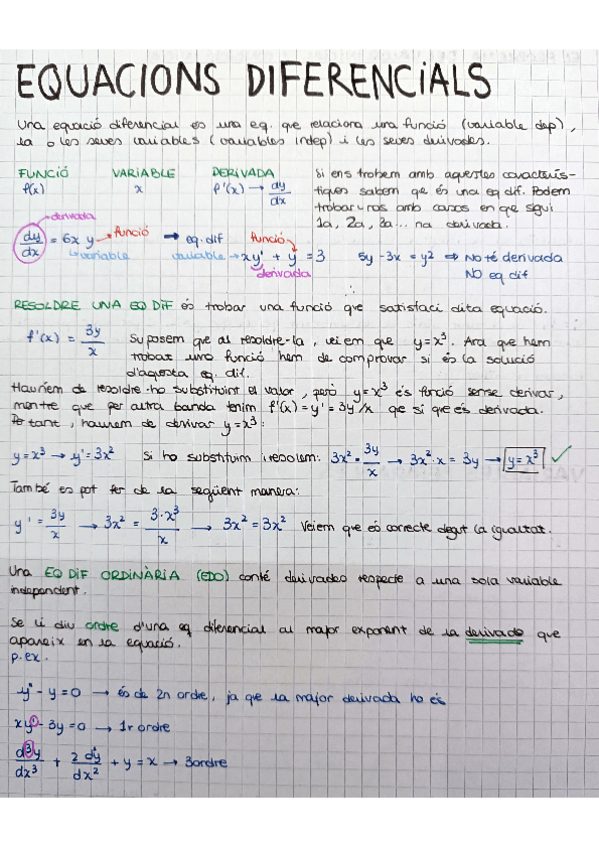 EQUACIONS DIFERENCIALS
Una equació diferencial es una eq. que relaciona una funció (variable dep),
la o les seves variables (variables indep) i les seves derivades.
FUNCIÓ VARIABLE DERIVADA
f(x) x f'(x) → dy/dx
Si ens trobem amb aquestes caracterís-
tiques sabem que és una eq dif. Podem
trobar-nos amb casos en que sigui
1a, 2a, 3a... na derivada.
derivada
dy/dx = 6x y → funció → eq. dif
variable
funció
variable → xy' + y = 3
derivada
5y - 3x = y² ⇒ No té derivada
NO eq dif
RESOLDRE UNA EQ DIF és trobar una funció que satisfaci dita equació.
f'(x) = 3y/x
Suposem que al resoldre-la, veiem que y=x³. Ara que hem
trobat una funció hem de comprovar si és la solució
d'aquesta eq. dif.
Hauríem de resoldre-ho substituint el valor, però y=x³ és funció sense derivar,
mentre que per altra banda tenim f'(x)=y'=3y/x que si que és derivada.
Per tant, haurem de derivar y=x³:
y=x³ → y'=3x² Si ho substituim i resolem: 3x² = 3y/x → 3x²·x = 3y → y=x³ ✓
També es pot fer de la següent manera:
y' = 3y/x → 3x² = 3·x³/x → 3x² = 3x² Veiem que és correcte degut la igualtat.
Una EQ DIF ORDINÀRIA (EDO) conté derivades respecte a una sola variable
independent.
Se li diu ordre d'una eq diferencial al major exponent de la derivada que
apareix en la equació.
p.ex.
y'' - y = 0 → és de 2n ordre, ja que la major derivada ho és
xy' - 3y = 0 → 1r ordre
d³y/dx³ + 2 d²y/dx² + y = x → 3 ordre